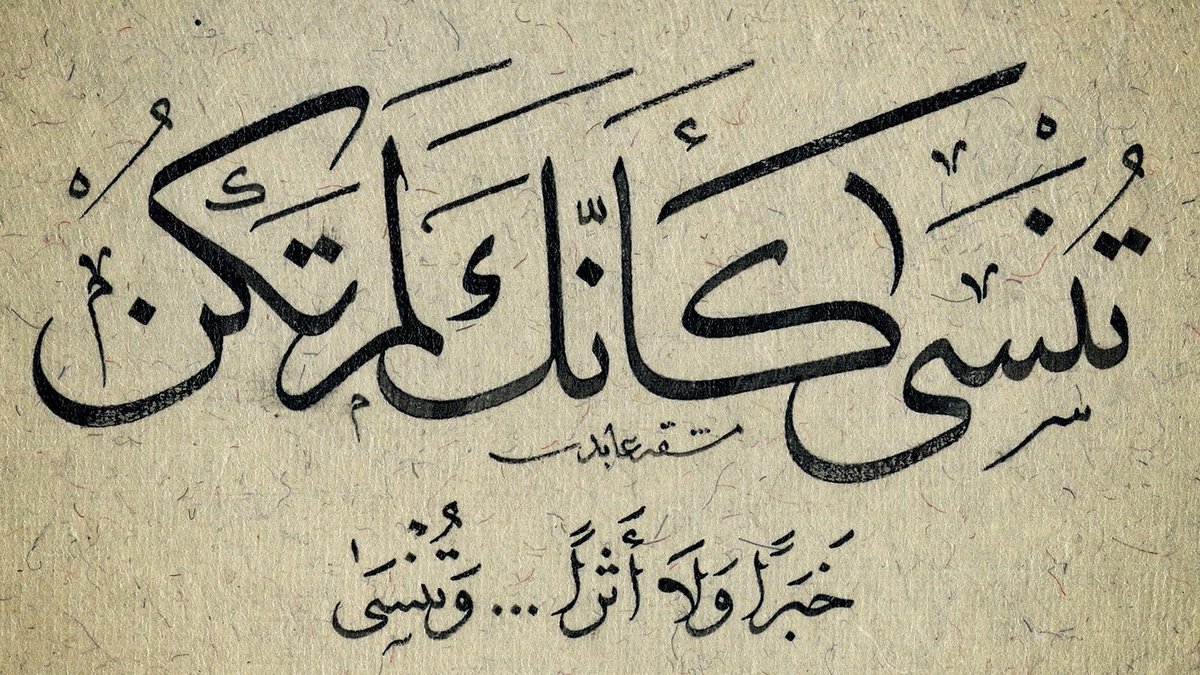 تُنْسَى كَأَنَّكَ لَمْ تَكُنْ
مشقه
خَبَرًا وَلَا أَثَرًا ... وَتُنْسَى